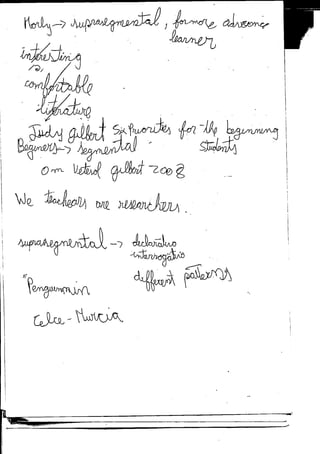 Morly -> suprasegmental, for more advance
learner
interesting
comfortable
literature
Judy gilbert Six Priorites for the beginning
students
Beginers -> segmental
om gilbert 2008
We teachers are researchers.
suprasegmental -> declarative
-interrogative
different patterns
Celce-Murcia